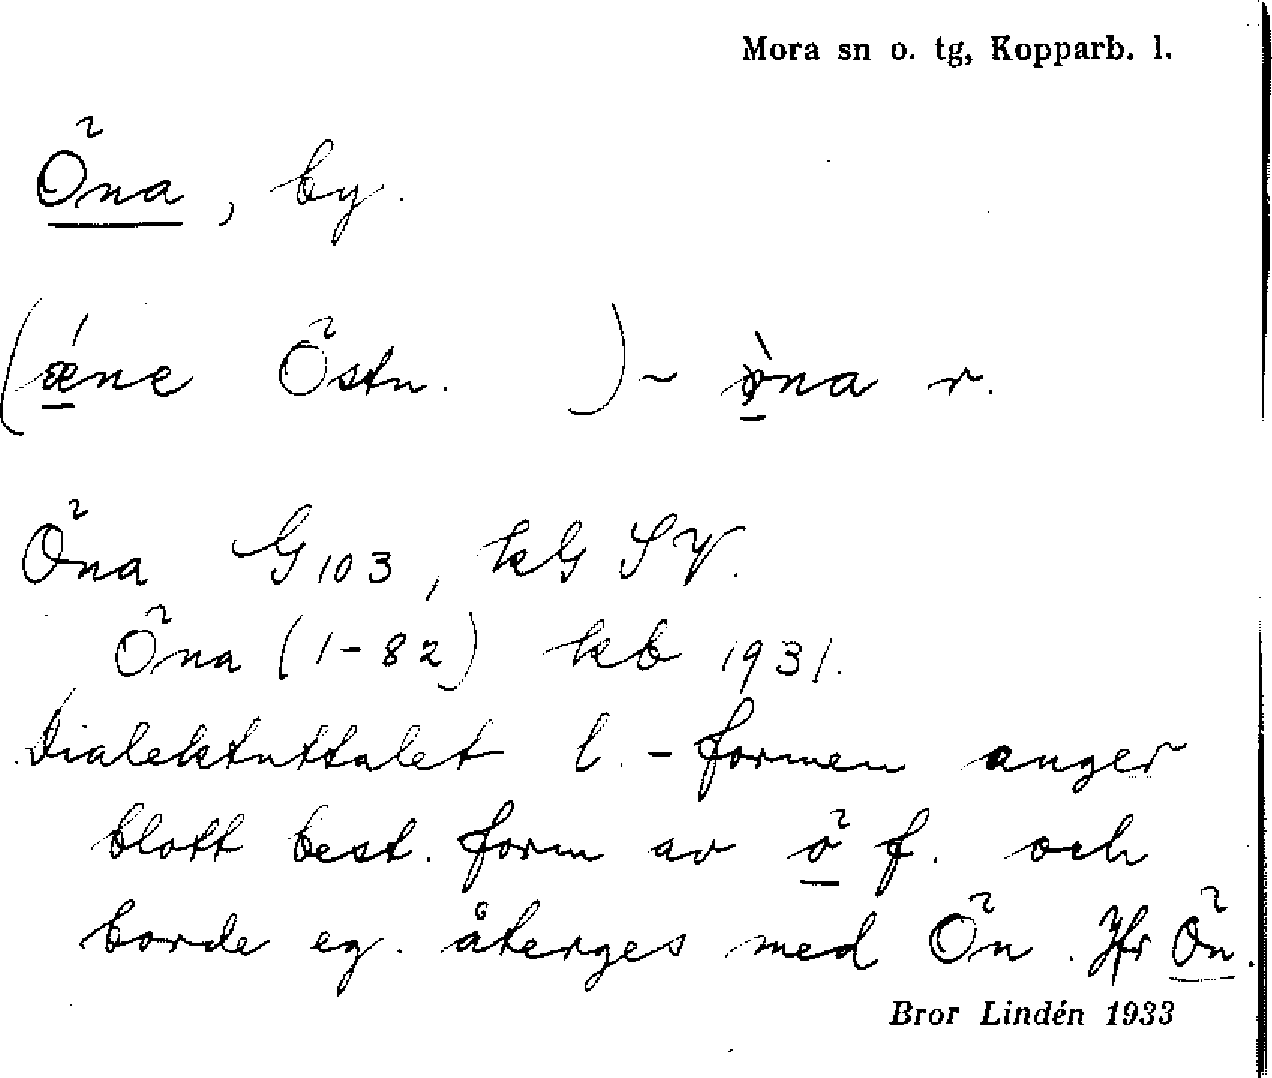 Mora sn o. tg, Kopparb. l.
Öna, by.
(œ́ne Östn. ) ~ø̀na r.
Öna G 103, kG SV.
Öna (1-82) kb 1931.
Dialektuttalet l. - formen anger
blott best. form av ö f. och
borde eg. återges med Ön. Jfr Ön.
Bror Lindén 1933